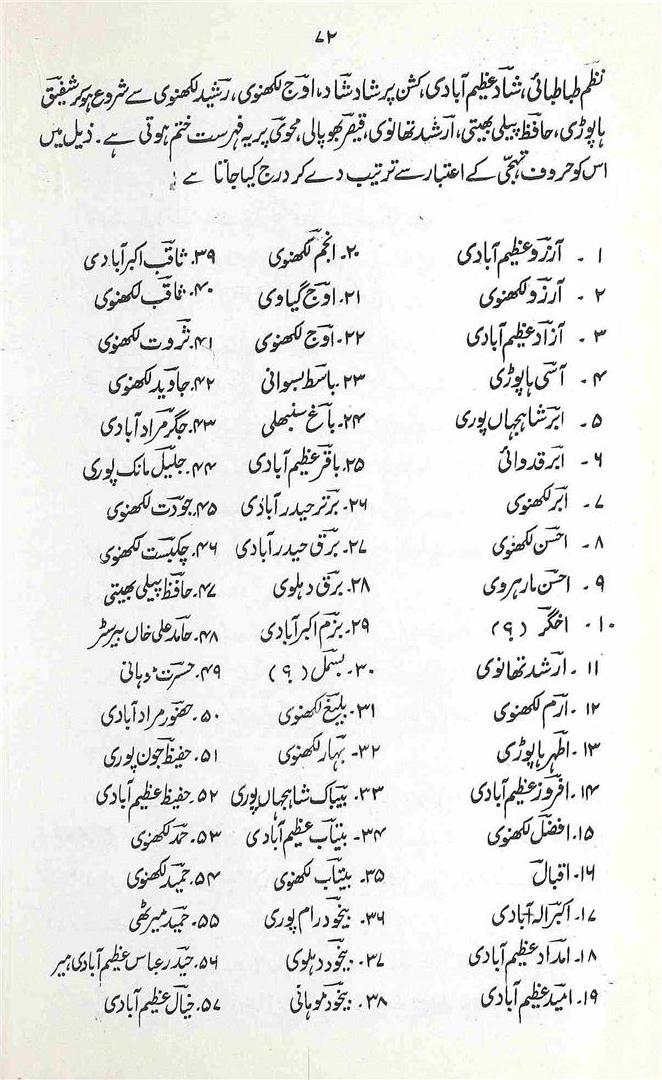 ۷۲
نظم طباطبائی، شاد عظیم آبادی، کشن پرشاد شاد، اوج لکھنوی، رشید لکھنوی سے شروع ہو کر شفیق
ہاپوڑی، حافظ پیلی بھیتی، ارشد تھانوی، قیصر بھوپالی، محوی پر یہ فہرست ختم ہوتی ہے۔ ذیل میں
اس کو حروف تہجی کے اعتبار سے ترتیب دے کر درج کیا جاتا ہے
۱ - آرزو عظیم آبادی ۲۰- انجم لکھنوی ۳۹- ثاقب اکبر آبادی
۲ - آرزو لکھنوی ۲۱- اوج گیاوی ۴۰- ثاقب لکھنوی
۳ - آزاد عظیم آبادی ۲۲- اوج لکھنوی ۴۱- ثروت لکھنوی
۴ - آسی ہاپوڑی ۲۳- باسط بسوانی ۴۲- جاوید لکھنوی
۵ - ابر شاہجہاں پوری ۲۴- باغ سنبھلی ۴۳- جگر مراد آبادی
۶ - ابر قدوائی ۲۵- باقر عظیم آبادی ۴۴- جلیل مانک پوری
۷ - ابر لکھنوی ۲۶- برتر حیدر آبادی ۴۵- جودت لکھنوی
۸ - احسن لکھنوی ۲۷- برق حیدر آبادی ۴۶- چکبست لکھنوی
۹ - احسن مارہروی ۲۸- برق دہلوی ۴۷- حافظ پیلی بھیتی
۱۰ - اخگر (؟) ۲۹- بزم اکبر آبادی ۴۸- حامد علی خاں بیرسٹر
۱۱ - ارشد تھانوی ۳۰- بسمل (؟) ۴۹- حسرت موہانی
۱۲ - ارم لکھنوی ۳۱- بلیغ لکھنوی ۵۰- حضور مراد آبادی
۱۳ - اطہر ہاپوڑی ۳۲- بہار لکھنوی ۵۱- حفیظ جون پوری
۱۴ - افروز عظیم آبادی ۳۳- بیباک شاہجہاں پوری ۵۲- حفیظ عظیم آبادی
۱۵- افضل لکھنوی ۳۴- بیتاب عظیم آبادی ۵۳- حمد لکھنوی
۱۶- اقبال ۳۵- بیتاب لکھنوی ۵۴- حمید لکھنوی
۱۷- اکبر الہ آبادی ۳۶- بیخود رام پوری ۵۵- حمید میرٹھی
۱۸- امداد عظیم آبادی ۳۷- بیخود دہلوی ۵۶- حیدر عباس عظیم آبادی ہیر
۱۹- امید عظیم آبادی ۳۸- بیخود موہانی ۵۷- خیال عظیم آبادی